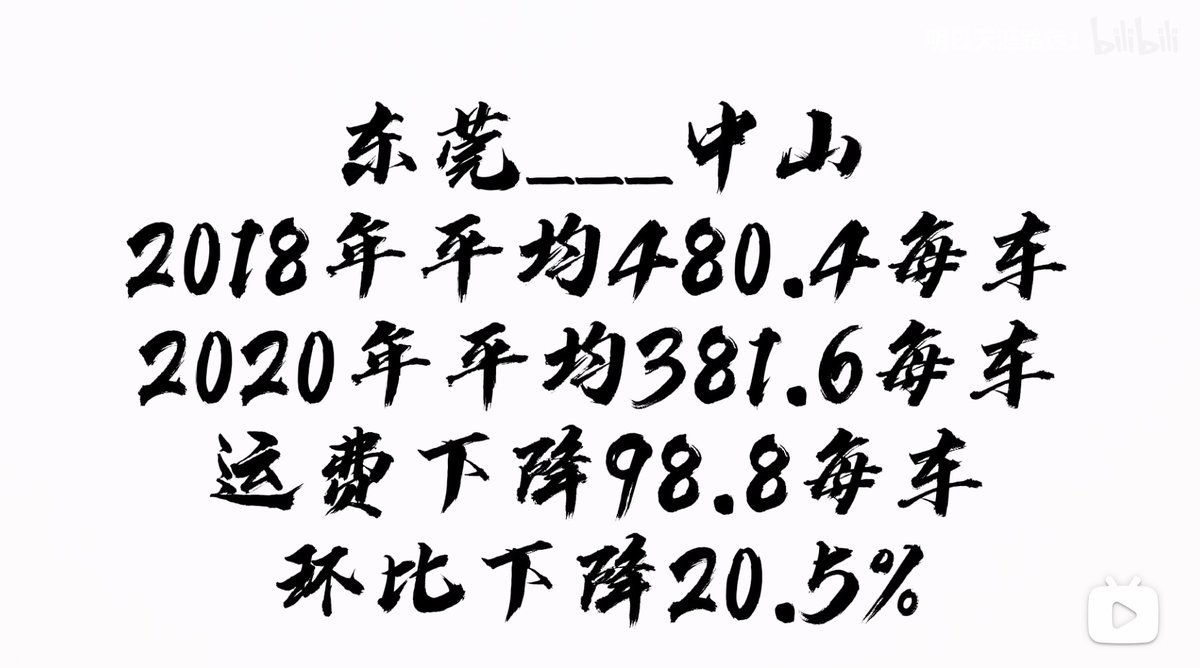 bilibili
东莞___中山
2018年平均480.4每车
2020年平均381.6每车
运费下降98.8每车
环比下降20.5%